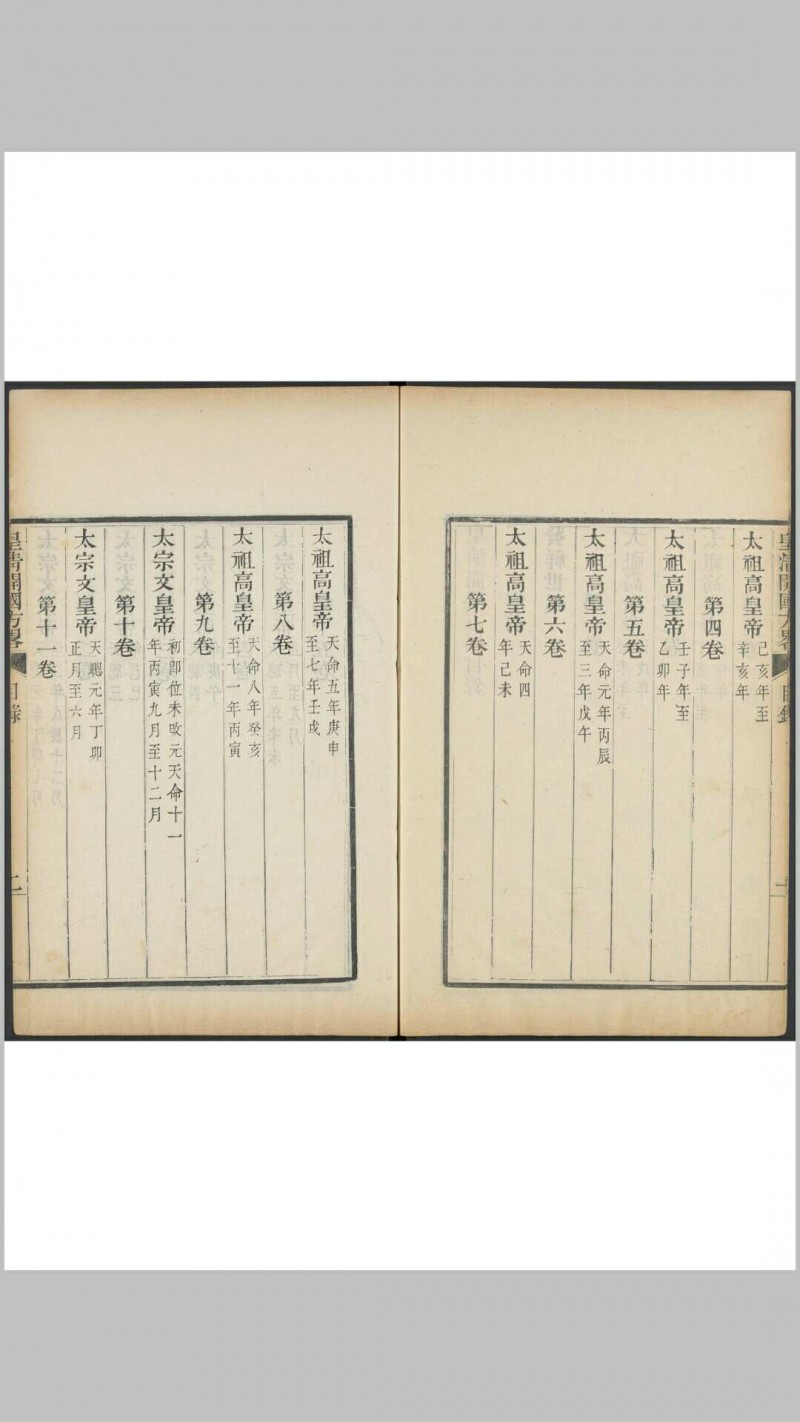 皇清開國方畧 目錄
太祖高皇帝 己亥年至辛亥年
第四卷
太祖高皇帝 壬子年至乙卯年
第五卷
太祖高皇帝 天命元年丙辰至三年戊午
第六卷
太祖高皇帝 天命四年己未
第七卷
太祖高皇帝 天命五年庚申至七年壬戌
第八卷
太祖高皇帝 天命八年癸亥至十一年丙寅
第九卷
太宗文皇帝 初即位未改元天命十一年丙寅九月至十二月
第十卷
太宗文皇帝 天聰元年丁卯正月至六月
第十一卷
皇清開國方畧 目錄 二